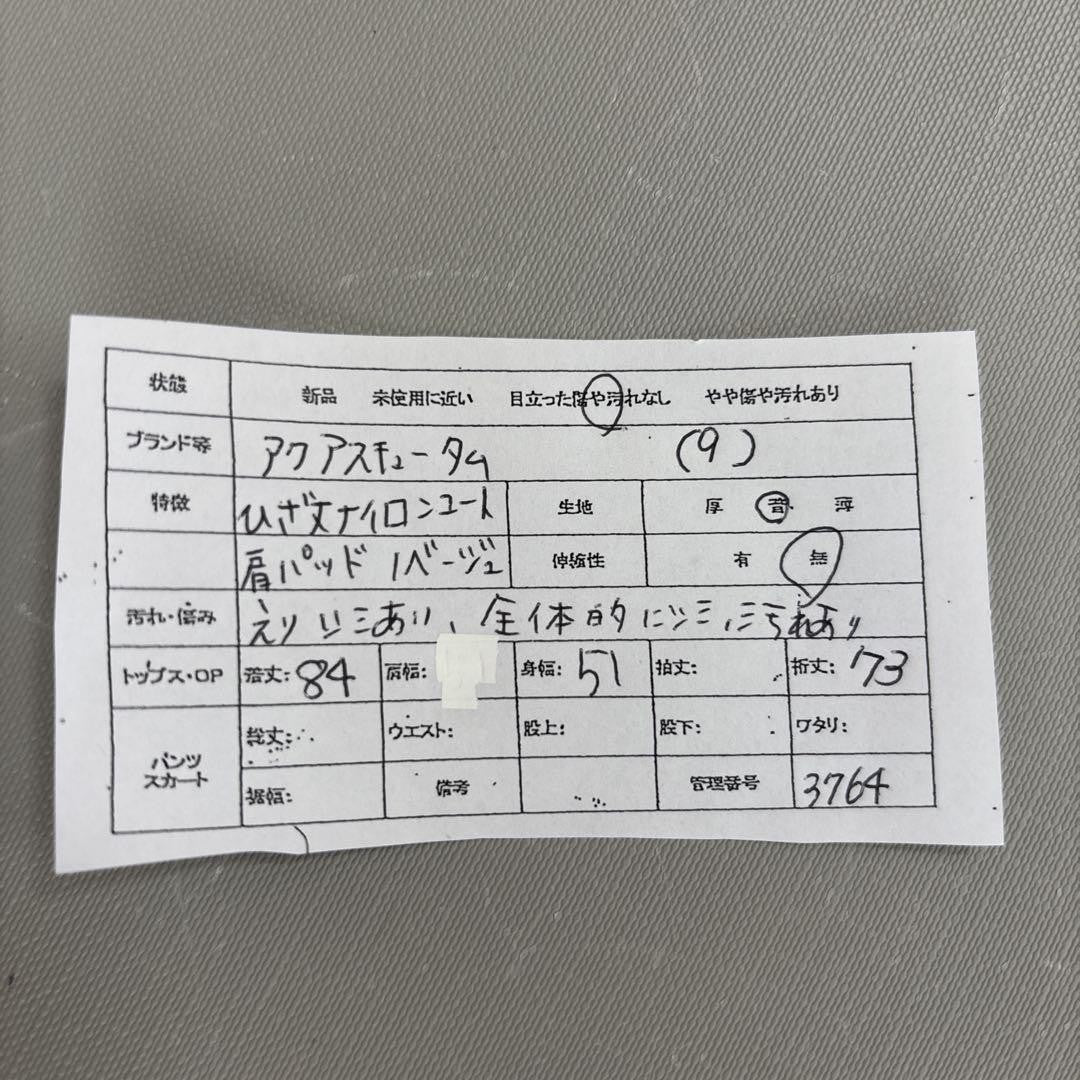 状態 新品 未使用に近い 目立った傷や汚れなし やや傷や汚れあり
ブランド等 アクアスキュータム (9)
特徴 ひざ丈ナイロンコート 生地 厚 普 薄
肩パッド / ベージュ 伸縮性 有 無
汚れ・傷み えりシミあり、全体的にシミ汚れあり
トップス・OP 着丈: 84 肩幅: 身幅: 51 袖丈: 裄丈: 73
パンツ スカート 総丈: ウエスト: 股上: 股下: ワタリ:
裾幅: 備考 管理番号 3764